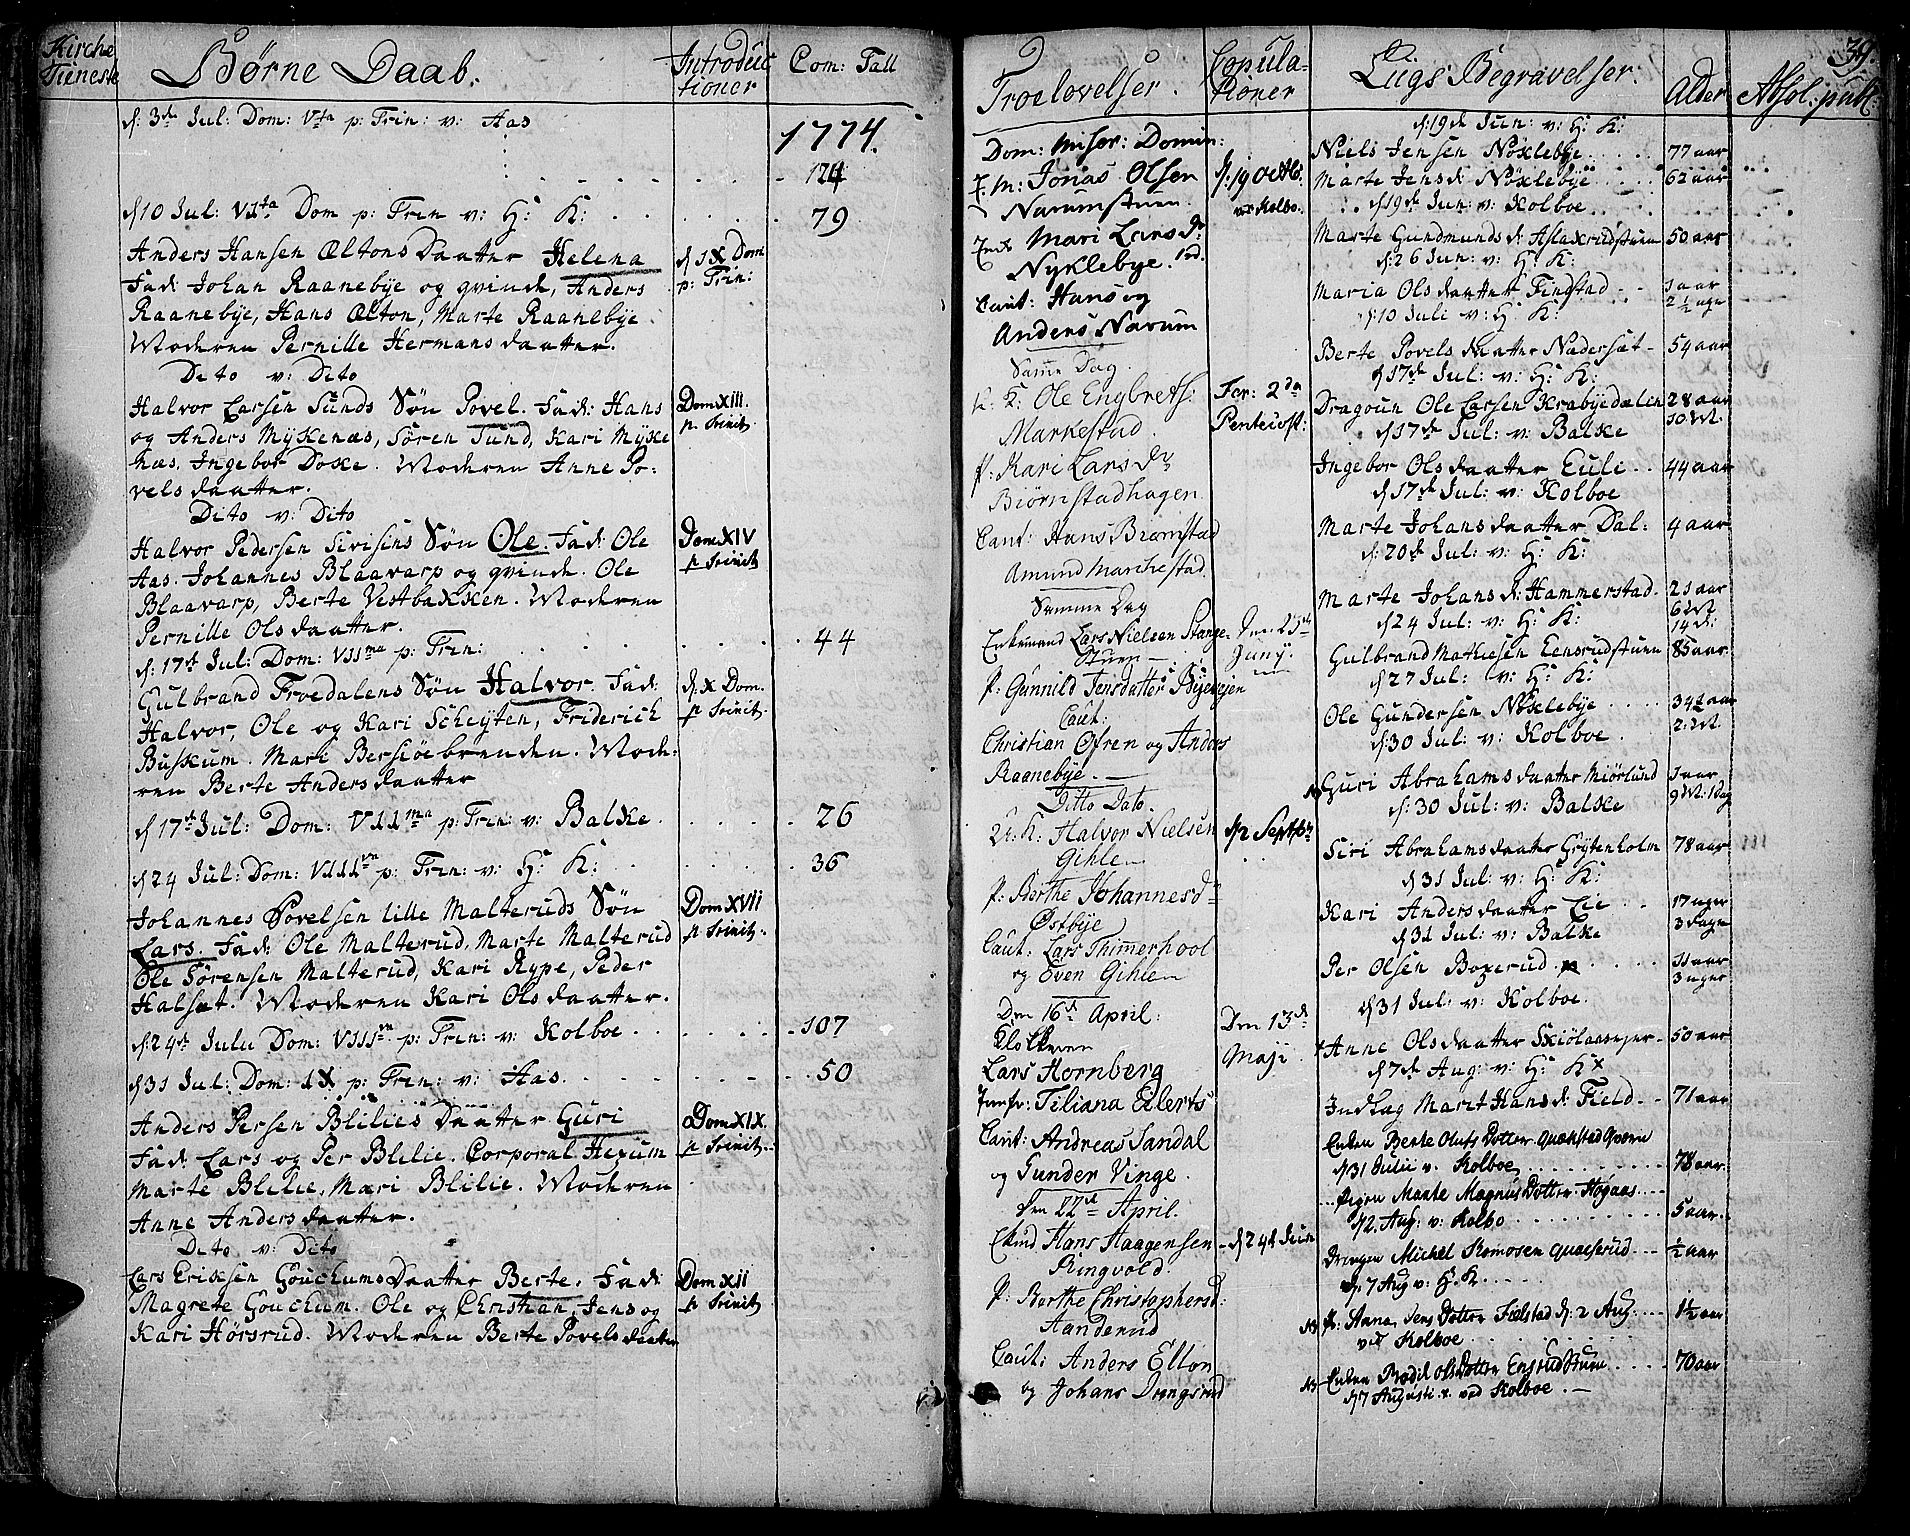 Kirche
Tieneste
Børne Daab.
Introduc
tioner
Com: Tall
d: 3de Jul: Dom: Vta p: Trin: v: Aas
1774.
124
d 10 Jul: VIta Dom p: Trin v: H: K:
79
Anders Hansen Æltons Daatter Helena
Fad: Johan Raanebye og qvinde, Anders
Raanebye, Hans Ælton, Marte Raanebye.
Moderen Pernille Hermans daatter.
d IX Dom
p: Trin:
Dito v: Dito
Halvor Larsen Sunds Søn Povel. Fad: Hans
og Anders Mykenæs, Sören Sund, Kari Myke
næs, Ingebor Doxe. Moderen Anne Po-
vels daatter.
Dom XIII.
p. Trinit.
Dito v: Dito
Halvor Pedersen Sivisins Søn Ole. Fad: Ole
Aas. Johannes Blaavarp og qvinde. Ole
Blaavarp, Berte Vestbakken. Moderen
Pernille Olsdaatter.
Dom XIV
p Trinit
d: 17de Jul: Dom: VIIma p: Trin:
44
Gulbrand Froedalens Søn Halvor. Fad:
Halvor, Ole og Kari Scheyten, Friderich
Buskum. Mari Bersiöebrenden. Mode:
ren Berte Anders daatter
d. X Dom.
p Trinit
d 17de Jul: Dom: VIIma p: Trin: v: Balke.
26
d 24 Jul: Dom: VIIIva p: Trin: v: H: K:
36
Johannes Povelsen lille Malteruds Søn
Lars. Fad: Ole Malterud, Marte Malterud
Ole Sörensen Malterud, Kari Rype, Peder
Halset. Moderen Kari Ols daatter.
Dom XVII
p Trinit
d: 24de Julii Dom: VIIIva p: Trin: v: Kolboe
107
d 31 Jul: Dom: IX p: Trin: v: Aas.
50
Anders Persen Blilies Daatter Guri
Fad: Lars og Per Blilie. Corporal Hexum
Marte Blilie, Mari Blilie. Moderen
Anne Anders daatter.
Dom XIX.
p Trinit
Dito v: Dito
Lars Eriksen Gouchums Daatter Berte. Fad:
Magrete Gouchum. Ole og Christian, Jens og
Kari Hörsrud. Moderen Berte Povels daatter
Dom XII
p Trinit
39.
Troelovelser.
Copula-
tioner
Ligs Begravelser.
Alder
Absol: publ:
Dom: Miser: Domin:
Jonas Olsen
Narumstuen.
d: 19 Octbr.
v: Kolbo.
Mari Lars dr
Nyklebye.
Caut: Hans og
Anders Narum
Samme Dag.
K: K: Ole Engbrets:
Markestad.
P: Kari Lars dr
Biørnstadhagen.
Fer: 2da
Pentecost:
Caut: Hans Biørnstad
Amund Markestad.
Samme Dag
Enkemand Lars Nielsen Stange
Stuen
P: Gunnild Jensdatter Byevejen
Den 29de
Junij.
Caut:
Christian Ofren og Anders
Raanebye.
Ditto Dato.
U: K: Halvor Nielsen
Gihle
P: Berthe Johannesdr
Østbye
d 2 Septbr
Caut: Lars Thimmerhool
og Even Gihle
Den 16de April:
Klokkeren
Lars Hornberg
Jomfr: Tiliana Eilerts
Den 13de
Maji
Caut: Andreas Sandal
og Gunder Vinge.
den 22de April.
Hans Haagensen
Ringvold.
P: Berthe Christophersd:
Aanderud
d 24de Junii
Caut: Anders Elton
og Johans Drengsrud
d: 19de Jun: v: H: K:
Niels Jensen Nöxlebye 77 aar
Marte Jensd: Nöxlebye 62 aar
d 19de Jun: v: Kolboe
Marte Gundmunds d: Aslaxrudstuen 50 aar
d: 26 Jun: v: H: K:
Maria Ols daatter Finstad 1 aar
2 1/2 uge
d: 10 Juli v: H: K:
Berte Povels daatter Nædersæt 54 aar
d 17de Jul: v: H: K:
Dragoun Ole Larsen Krabyedalen 28 aar
10 Vt:
d 17de Jul: v: Balke
Ingebor Ols daatter Euli 44 aar
d 17de Jul: v: Kolboe
Marte Johans daatter Dal: 4 aar
d: 20de Jul: v: H: K:
Marte Johans d: Hammerstad 21 aar
6 Vt
14 d:
d: 24 Jul: v: H: K:
Gulbrand Mathiesen Eensrudstuen 85 aar
d: 27 Jul: v: H: K:
Ole Gundersen Nöxlebye 34 1/2 aar
2 Vt
d: 30 Jul: v: Kolboe
Guri Abrahams daatter Miörlund 1 aar
9 Vt: 1 Dag
d: 30 Jul: v: Balke
Siri Abrahams daatter Grytenholm 78 aar
d 31 Jul: v: H: K:
Kari Anders daatter Lie 17 uger
3 dage
d 31 Jul: v: Balke
Per Olsen Boxerud 11 aar
3 uger
d 31 Jul: v: Kolboe.
Anne Ols daatter Skiölaaseger 50 aar
d 7de Aug: v: H: K
Indlag Marit Hans d: Field 71 aar
Enken Berte Olufs Dotter Quækstad Qværn
d 31 Julii v. Kolboe 78 aar
Pigen Marte Magnus Dotter Høgaas
d 2. Aug: v: Kolbo 5 aar
Drengen Michel Romosen Quæserud 1/2 aar
d 7 Aug v: H. K.
P: Anna Jens Dotter Fielstad d: 2 Aug. 1 1/2 aar
ved Kolboe
Enken Bodil Ols Dotter Ensrud Stuen 70 aar
d 7 Augusti ved Kolboe.